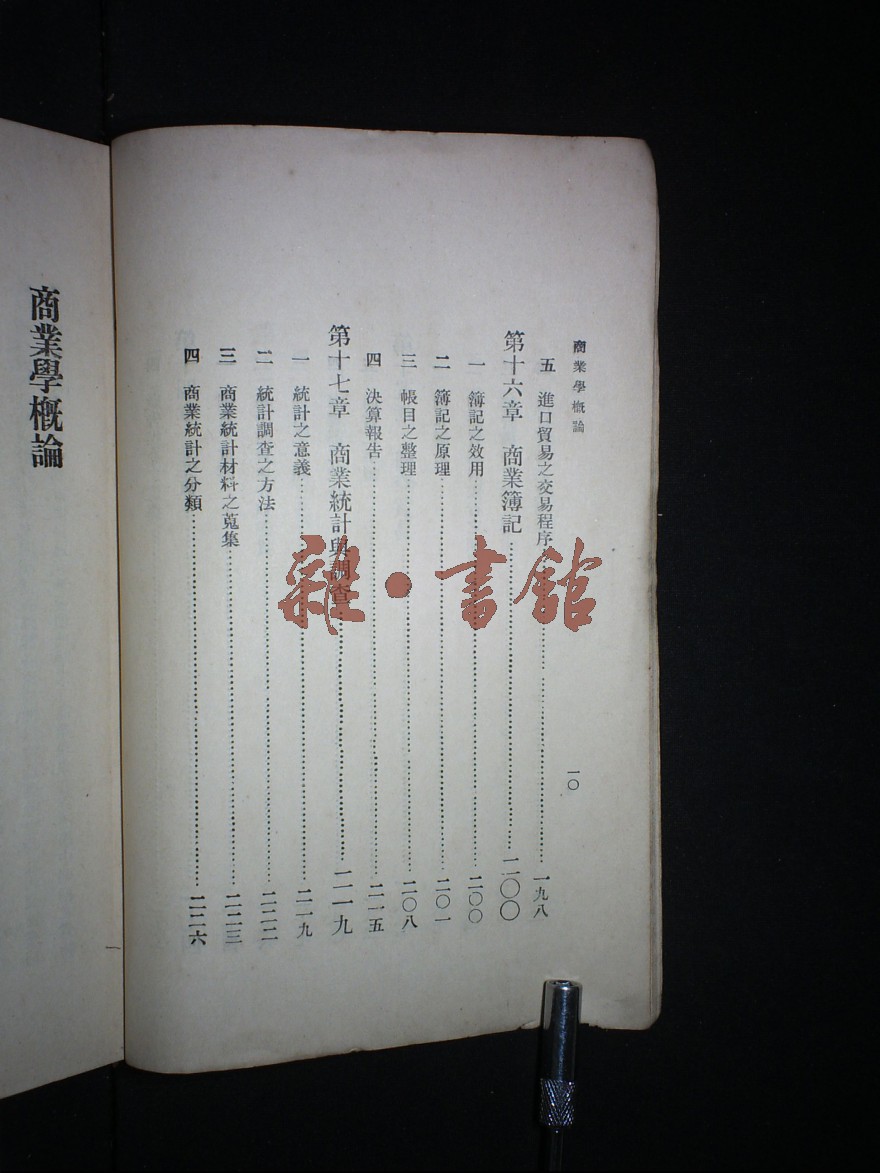 商業學概論
一〇
五 進口貿易之交易程序……一九八
第十六章 商業簿記……二〇〇
一 簿記之效用……二〇〇
二 簿記之原理……二〇一
三 帳目之整理……二〇八
四 決算報告……二一五
第十七章 商業統計與調查……二一九
一 統計之意義……二一九
二 統計調查之方法……二二二
三 商業統計材料之蒐集……二二三
四 商業統計之分類……二二六
商業學概論
雜·書館